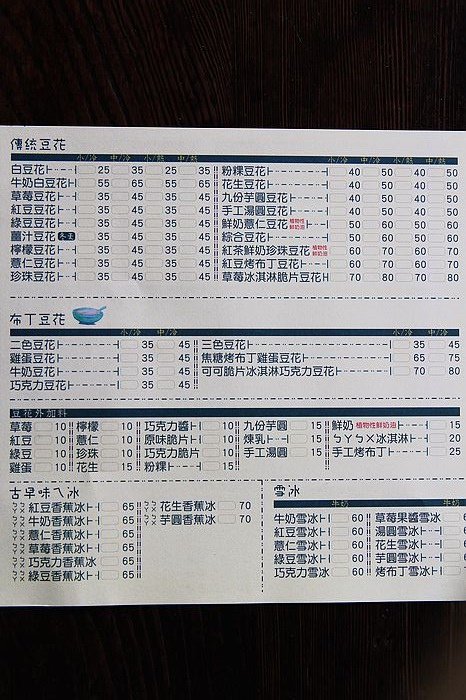 傳統豆花
小/冷 中/冷 小/熱 中/熱 小/冷 中/冷 小/熱 中/熱
白豆花 25 35 25 35 粉粿豆花 40 50 40 50
牛奶白豆花 55 65 55 65 花生豆花 40 50 40 50
草莓豆花 35 45 35 45 九份芋圓豆花 40 50 40 50
紅豆豆花 35 45 35 45 手工湯圓豆花 40 50 40 50
綠豆豆花 35 45 35 45 鮮奶薏仁豆花 植物性鮮奶油 50 60 50 60
薑汁豆花 冬季 35 45 35 45 綜合豆花 50 60 50 60
檸檬豆花 35 45 35 45 紅茶鮮奶珍珠豆花 植物性鮮奶油 60 70 60 70
薏仁豆花 35 45 35 45 紅豆烤布丁豆花 60 70 60 70
珍珠豆花 35 45 35 45 草莓冰淇淋脆片豆花 70 80 70 80
布丁豆花
小/冷 中/冷 小/冷 中/冷
二色豆花 35 45 三色豆花 35 45
雞蛋豆花 35 45 焦糖烤布丁雞蛋豆花 65 75
牛奶豆花 35 45 可可脆片冰淇淋巧克力豆花 70 80
巧克力豆花 35 45
豆花外加料
草莓 10 檸檬 10 巧克力醬 10 九份芋圓 15 鮮奶 植物性鮮奶油 15
紅豆 10 薏仁 10 原味脆片 10 煉乳 15 ㄅㄚㄅㄨ冰淇淋 20
綠豆 10 珍珠 10 巧克力脆片 10 手工湯圓 15 手工烤布丁 25
雞蛋 10 花生 10 粉粿 15
古早味ㄟ冰
ㄅㄚㄅㄨ紅豆香蕉冰 65 ㄅㄚㄅㄨ花生香蕉冰 70
ㄅㄚㄅㄨ牛奶香蕉冰 65 ㄅㄚㄅㄨ芋圓香蕉冰 70
ㄅㄚㄅㄨ薏仁香蕉冰 65
ㄅㄚㄅㄨ草莓香蕉冰 65
ㄅㄚㄅㄨ巧克力香蕉冰 65
ㄅㄚㄅㄨ綠豆香蕉冰 65
雪冰
牛奶 牛奶
牛奶雪冰 60 草莓果醬雪冰 6
紅豆雪冰 60 湯圓雪冰 6
薏仁雪冰 60 花生雪冰 6
綠豆雪冰 60 芋圓雪冰 6
巧克力雪冰 60 烤布丁雪冰 6